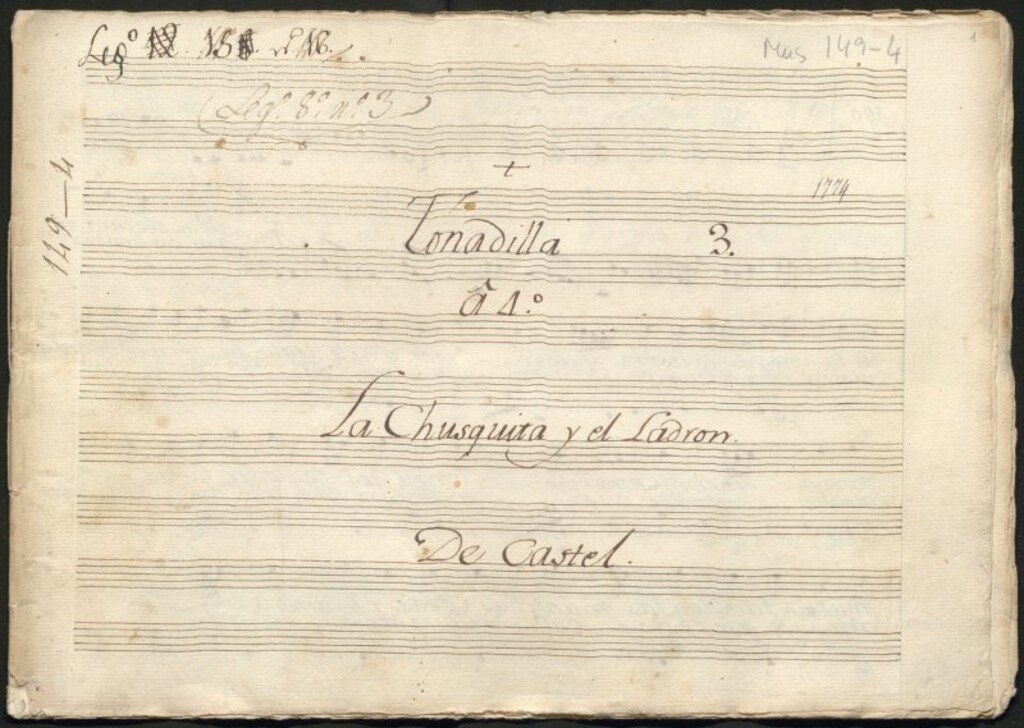 Leg.º 15 nº 18.
Mus 149-4
1
(Leg.º 8.º n.º 3)
149-4
+
1774
Tonadilla 3.
â 4.º
La Chusquita y el Ladron.
De Castel.